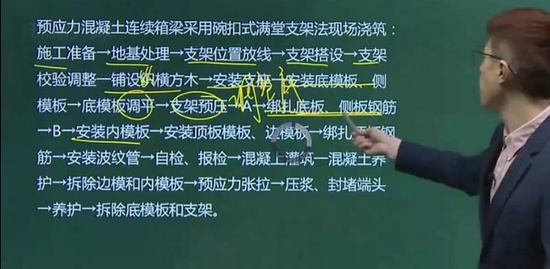 预应力混凝土连续箱梁采用碗扣式满堂支架法现场浇筑：
施工准备→地基处理→支架位置放线→支架搭设→支架
校验调整→铺设纵横方木→安装支座→安装底模板、侧
模板→底模板调平→支架预压→A→绑扎底板、侧板钢筋
→B→安装内模板→安装顶板模板、边模板→绑扎
筋→安装波纹管→自检、报检→混凝土灌筑→混凝土养
护→拆除边模和内模板→预应力张拉→压浆、封堵端头
→养护→拆除底模板和支架。